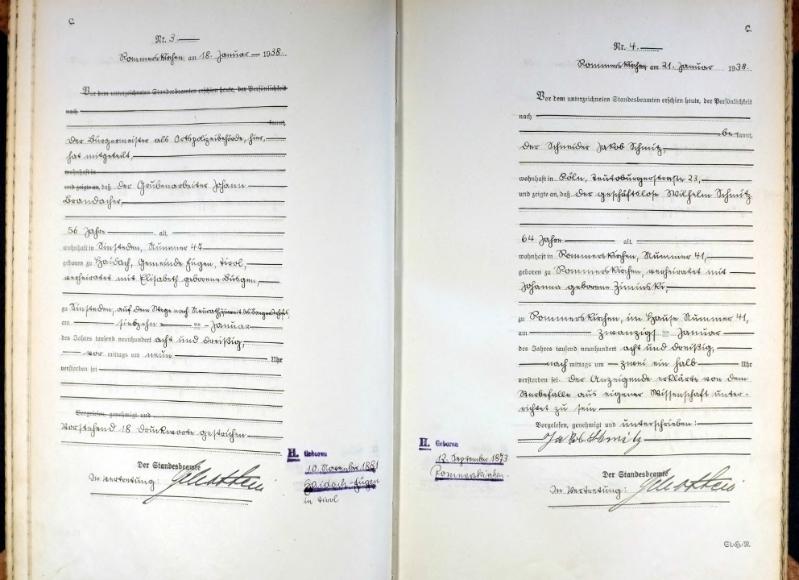 C.
Nr. 3.
Rommerskirchen am 18. Januar 1938.
Vor dem unterzeichneten Standesbeamten erschien heute, der Persönlichkeit
nach
kannt,
Der Bürgermeister als Ortspolizeibehörde, hier,
hat mitgeteilt,
wohnhaft in
und zeigte an, daß der Grubenarbeiter Johann
Brandacher,
56 Jahre alt,
wohnhaft in Sinsteden, Nummer 47
geboren zu Haidach, Gemeinde Fügen, Tirol,
verheiratet mit Elisabeth geborene Büsgen,
zu Sinsteden, auf dem Wege nach Neurath
am siebzehn ten Januar
des Jahres tausend neunhundert acht und dreißig,
vor mittags um neun Uhr
verstorben sei.
Vorgelesen, genehmigt und
Vorstehend 18 Druckworte gestrichen
Der Standesbeamte
In Vertretung:
H. Geboren
10. November 1881
Haidach-Fügen
in Tirol
C.
Nr. 4.
Rommerskirchen am 21. Januar 1938.
Vor dem unterzeichneten Standesbeamten erschien heute, der Persönlichkeit
nach
be kannt,
Der Schneider Jakob Schmitz,
wohnhaft in Cöln, Teutoburgerstraße 23,
und zeigte an, daß der geschäftslose Wilhelm Schmitz
64 Jahre alt
wohnhaft in Rommerskirchen, Nummer 41,
geboren zu Rommerskirchen, verheiratet mit
Johanna geborene Ziminski,
zu Rommerskirchen, im Hause Nummer 41,
am zwanzigs ten Januar
des Jahres tausend neunhundert acht und dreißig,
nach mittags um zwei ein halb Uhr
verstorben sei. Der Anzeigende erklärte von dem
Sterbefalle aus eigener Wissenschaft unter-
richtet zu sein
Vorgelesen, genehmigt und unterschrieben:
Jakob Schmitz
Der Standesbeamte
In Vertretung:
H. Geboren
12. September 1873
Rommerskirchen
St.H.N.